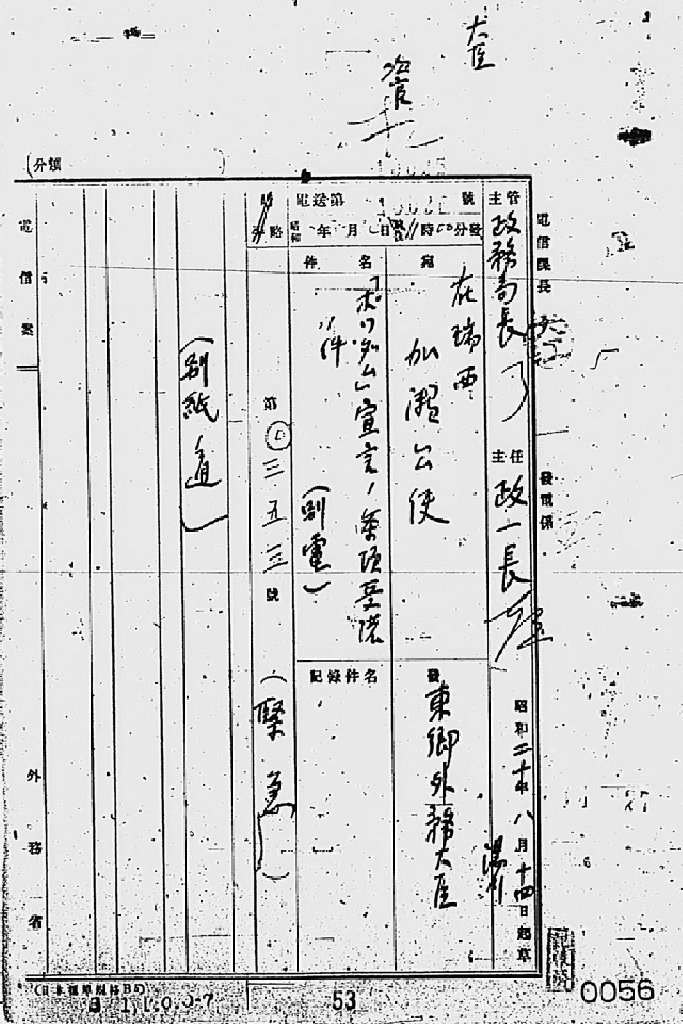 大臣
次官
(分類　　)
電信課長
發電係
主管　政務局長
主任　政一長
昭和二十年八月十四日起草
電送第　　號
昭和　年　月　日　時　分發
宛　在瑞西
加瀬公使
發　東郷外務大臣
件名　「ポツダム」宣言ノ條項受諾
ノ件　(別電)
記錄件名
第　三五三　號　(緊急)
(別紙通)
電信案
外務省
(日本標準規格B5)
1,1,0,0-7
53
0056